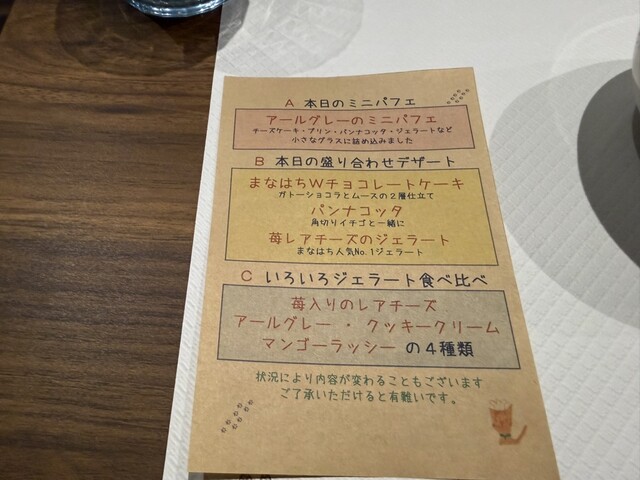 A 本日のミニパフェ
アールグレーのミニパフェ
チーズケーキ・プリン・パンナコッタ・ジェラートなど
小さなグラスに詰め込みました
B 本日の盛り合わせデザート
まなはちWチョコレートケーキ
ガトーショコラとムースの2層仕立て
パンナコッタ
角切りイチゴと一緒に
苺レアチーズのジェラート
まなはち人気No.1ジェラート
C いろいろジェラート食べ比べ
苺入りのレアチーズ
アールグレー ・ クッキークリーム
マンゴーラッシー の4種類
状況により内容が変わることもございます
ご了承いただけると有難いです。